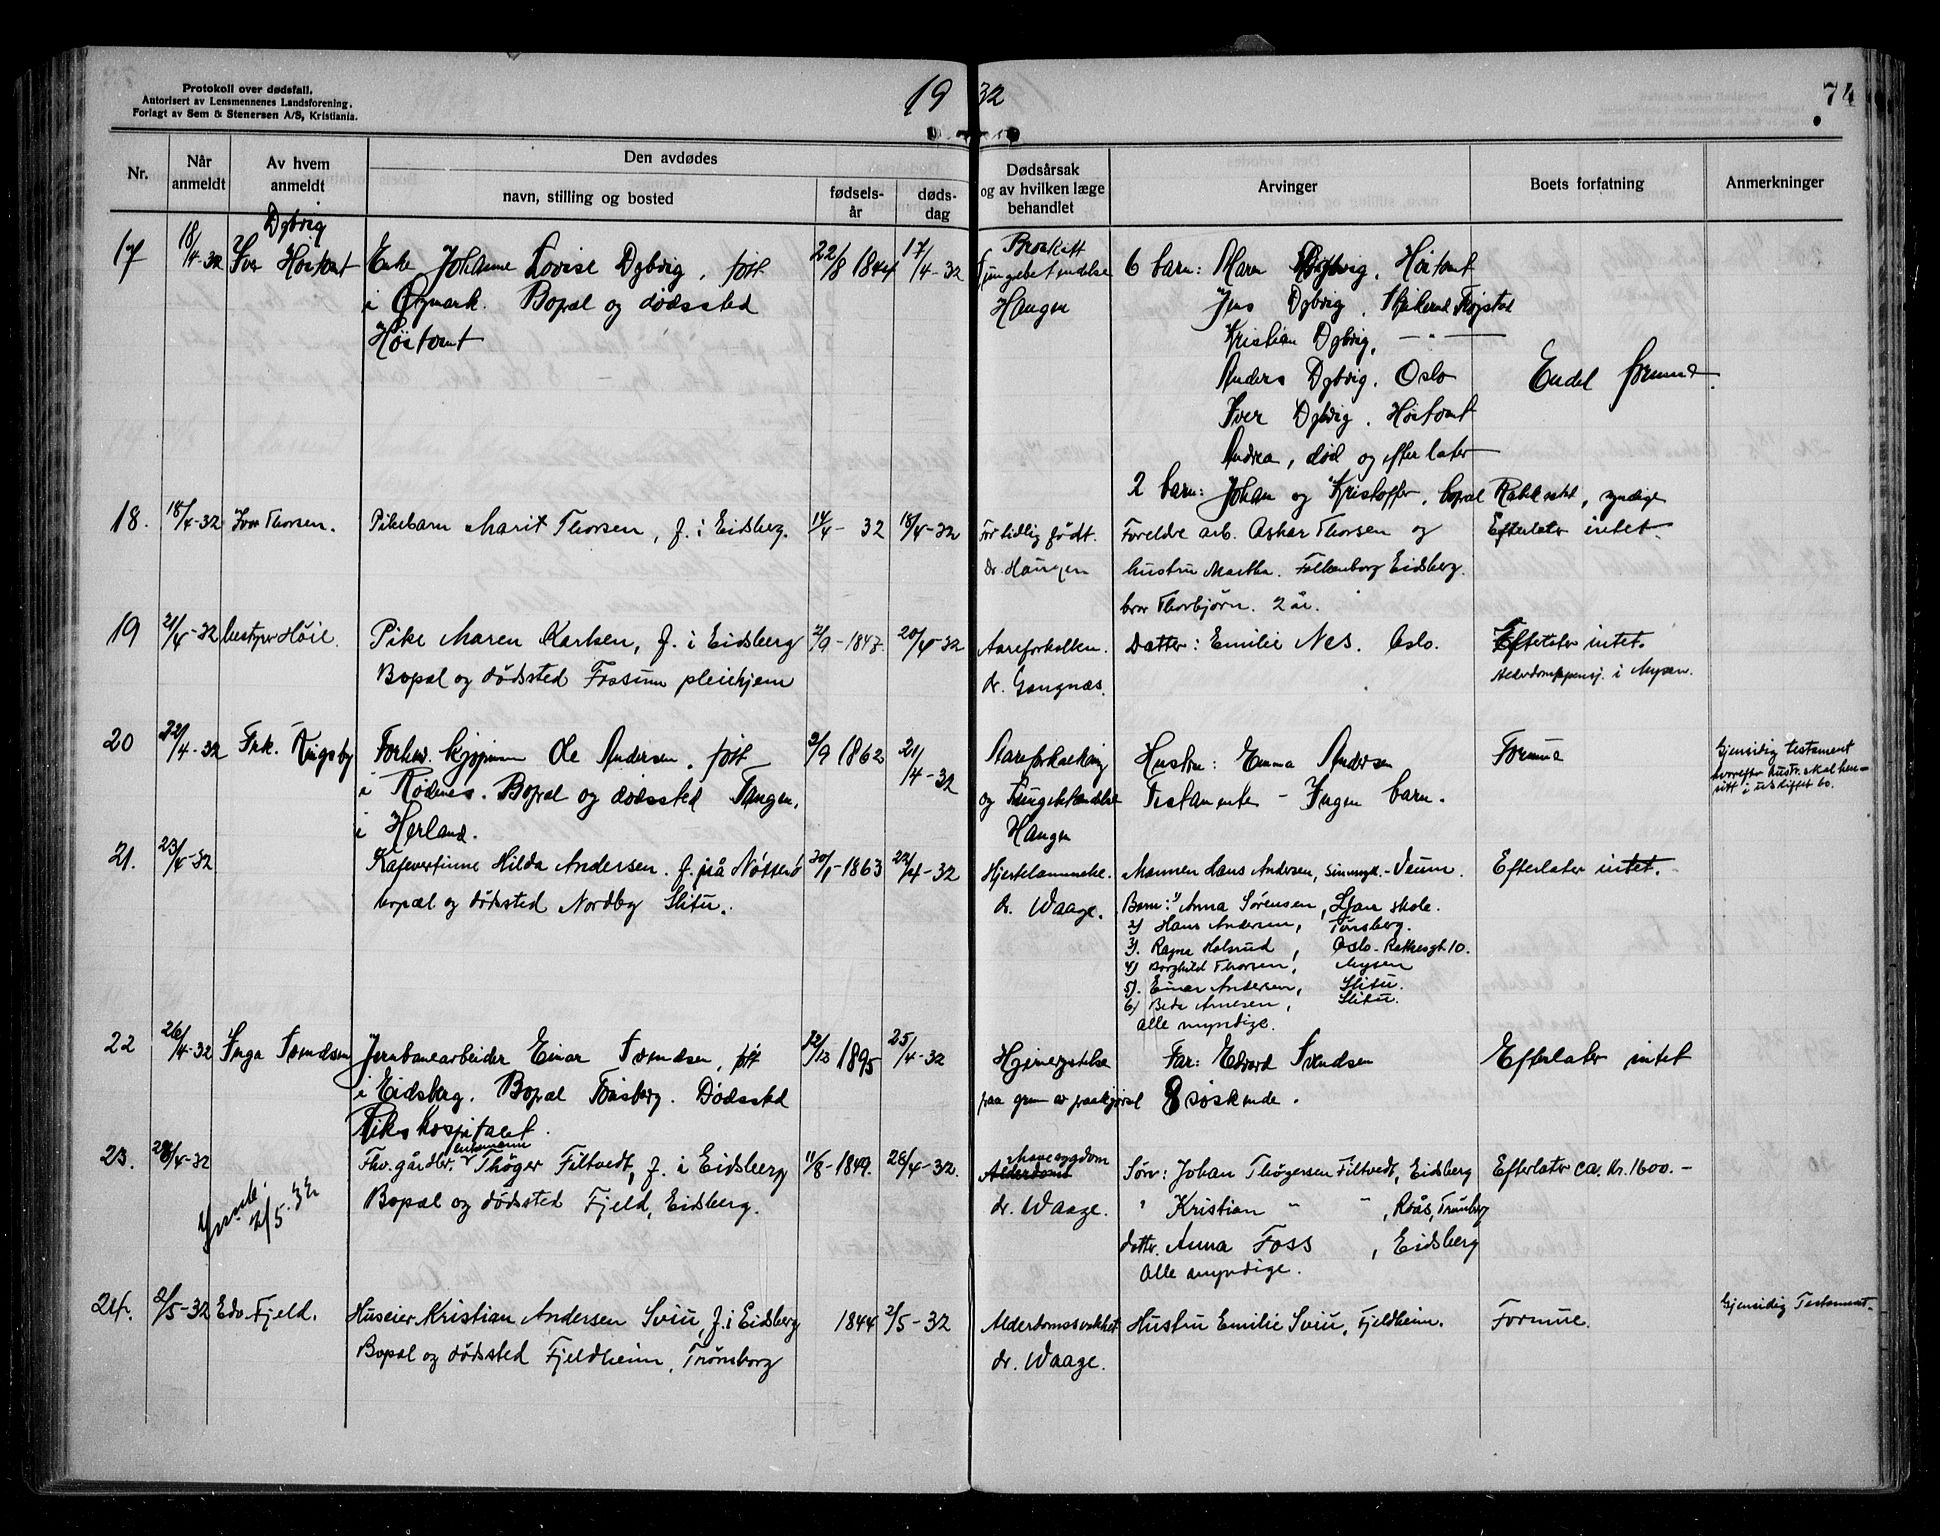 Protokoll over dødsfall.
Autorisert av Lensmennenes Landsforening.
Forlagt av Sem & Stenersen A/S, Kristiania.
1932
74
Nr.
Når anmeldt
Av hvem anmeldt
Den avdødes
navn, stilling og bosted
fødsels-år
døds-dag
Dødsårsak og av hvilken læge behandlet
Arvinger
Boets forfatning
Anmerkninger
17 18/4-32 Iver Dybvig Høitomt
Enke Johanne Lovise Dybvig, født
i Øymark. Bopæl og dødssted
Høitomt
22/8 1844 17/4-32
Bronkitt
Lungebetendelse
Haugen
6 barn: Maren Dybvig, Høitomt
Jens Dybvig,
Kristian Dybvig, — " —
Anders Dybvig, Oslo
Iver Dybvig, Høitomt
Andrea, død og efterlater
2 barn: Johan og Kristoffer, bopæl Rakkestad, myndige
Endel formue.
18. 18/4-32 Ivar Thorsen.
Pikebarn Marit Thorsen, f. i Eidsberg.
14/4- 32 18/4-32
For tidlig født.
dr. Haugen
Foreldre arb. Asker Thorsen og
hustru Martha. Folkenborg Eidsberg.
bror Thorbjørn. 2 år.
Efterlater intet.
19 21/4-32 bestyrer Høie.
Pike Maren Karlsen, f. i Eidsberg
Bopæl og dødssted Fossum pleiehjem
2/9-1847. 20/4-32
Aareforkalken.
dr. Gangnæs.
Datter: Emilie Nes. Oslo.
Efterlater intet.
Alderdomspensj. i Mysen.
20 22/4-32 Frk. Ringsby
Forhv. kjøpmann Ole Andersen, født
i Rødenes. Bopæl og dødssted Tangen,
i Herland.
2/9 1862 21/4-32
Aareforkalkning
og Lungebetændelse
Haugen
Hustru: Emma Andersen
Testamente – Ingen barn.
Formue
Gjensidig testament
hvorefter hustr. skal hen-
sitt i uskiftet bo.
21. 23/4-32
Kafevertinne Hilda Andersen. f. på Nøtterø
bopæl og dødssted Nordby Slitu.
20/1-1863 22/4-32
Hjertelammelse.
dr. Waage.
Mannen Hans Andersen, sinnssyk.- Veum.
Barn: 1) Anna Sørensen, Ljan skole.
2) Hans Andersen, Tønsberg.
3). Ragna Holsrud, Oslo - Rathkesgt. 10.
4) Borghild Thorsen, Mysen
5). Einar Andersen, Slitu.
6) Beda Arnesen, Slitu.
alle myndige.
Efterlater intet.
22 26/4-32 Inga Svendsen
Jernbanearbeider Einar Svendsen, født
i Eidsberg. Bopæl Dødssted
Rikshospitalet.
22/12 1895 25/4-32
Hjernerystelse
paa grun av paakjørsel
Far: Edvard Svendsen
8 søskende.
Efterlater intet
23. 28/4-32
Fhv. gårdbr. enkemann Thøger Filtvedt, f. i Eidsberg
Bopæl og dødssted Fjeld, Eidsberg.
11/8-1849. 26/4-32.
Alderdom Mavesygdom
dr. Waage.
Sønn: Johan Thøgersen Filtvedt, Eidsberg
" Kristian " ", Raås, Trømborg
datter. Anna Foss, Eidsberg
Alle myndige.
Efterlater ca. kr. 1600.-
2/5.32
24. 2/5-32 Edv. Fjeld.
Huseier Kristian Andersen Sviu, f. i Eidsberg
Bopæl og dødssted Fjeldheim, Trømborg
1844 2/5-32
Alderdomssvakhet
dr. Waage.
Hustru Emilie Sviu, Fjeldheim.
Formue.
Gjensidig Testament.